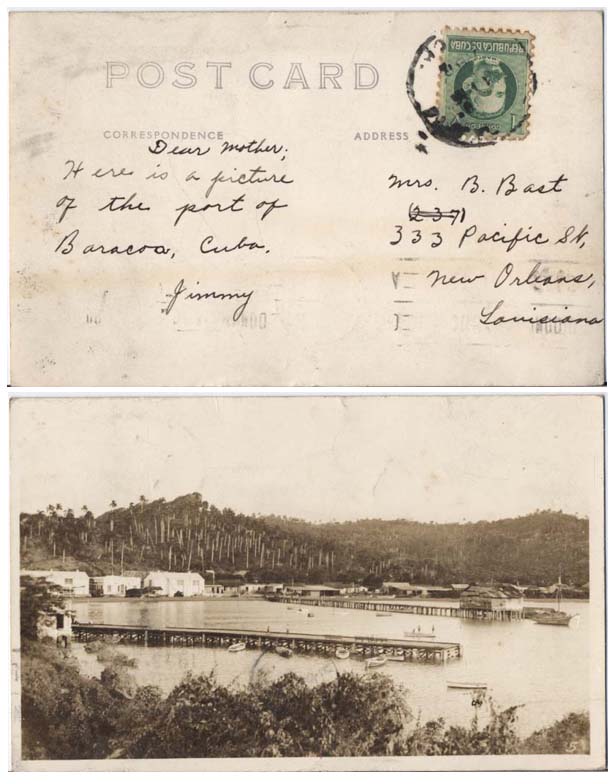 POST CARD
REPUBLICA DE CUBA
1
CORRESPONDENCE
ADDRESS
Dear Mother;
Here is a picture
of the port of
Baracoa, Cuba.
Jimmy
Mrs. B. Bast
(237)
333 Pacific St,
New Orleans,
Louisiana
5